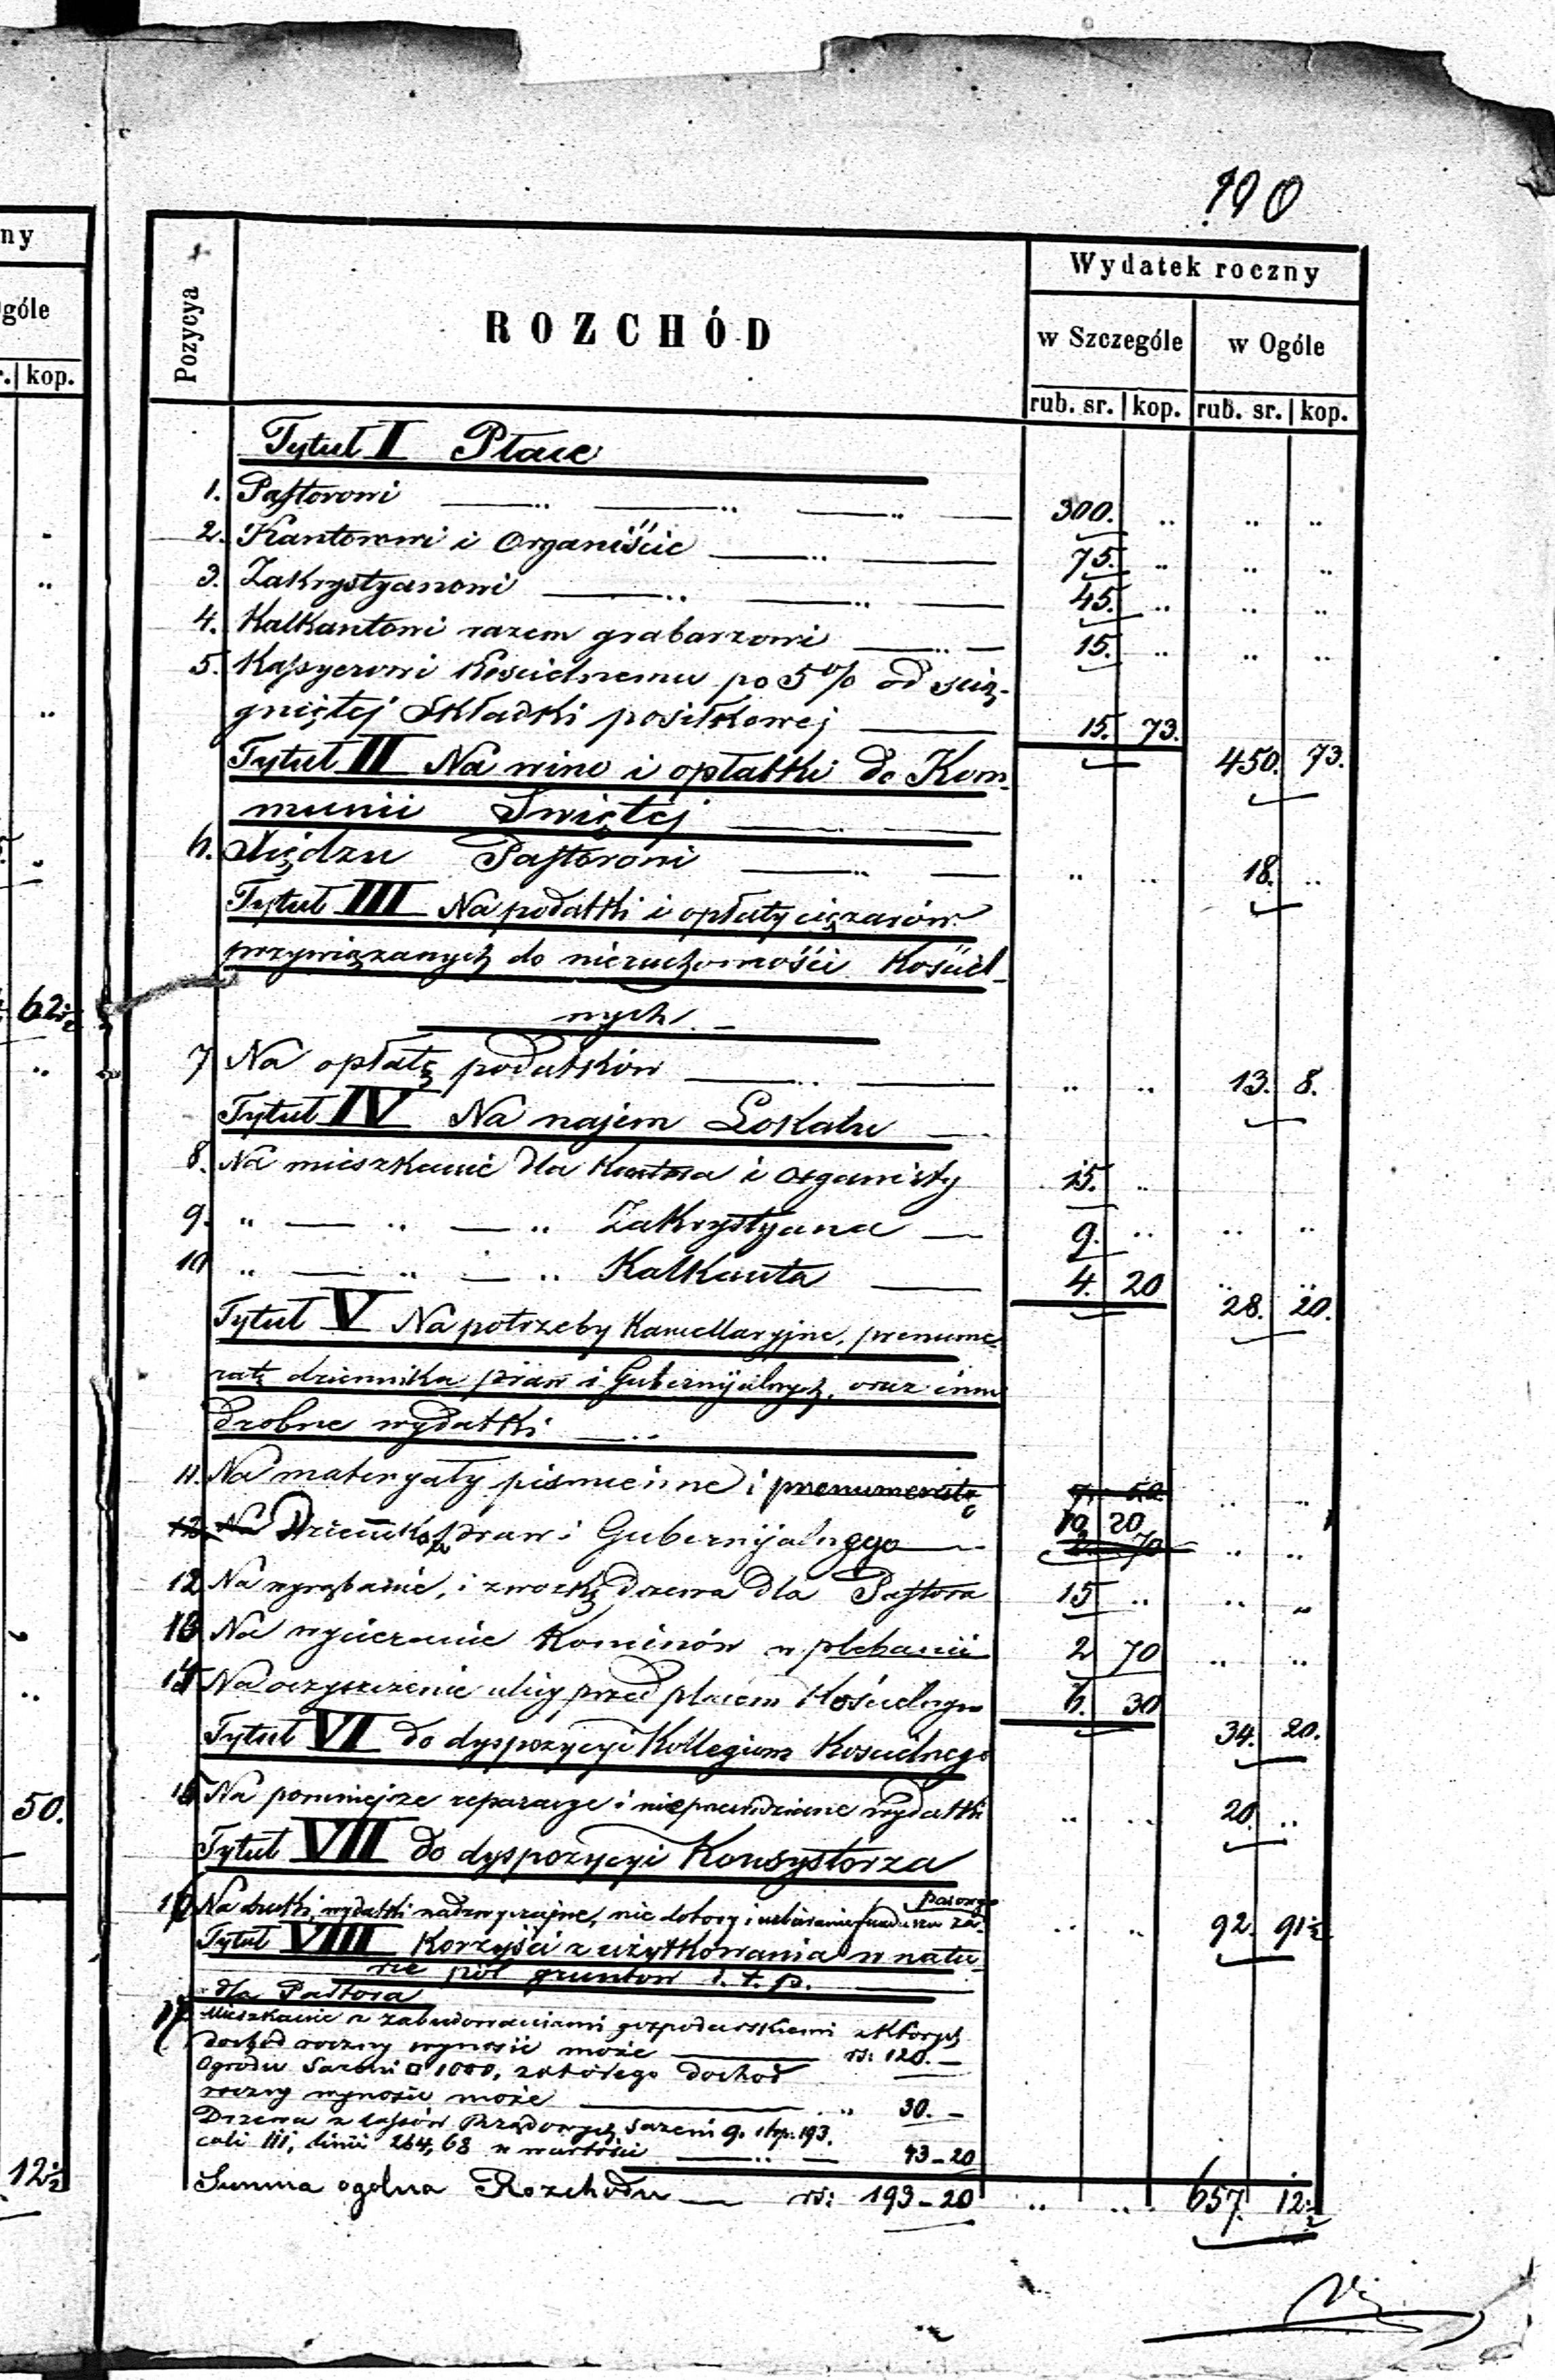 190
ny
Ogóle
r. kop.
62½
50.
12½
Pozycya
ROZCHÓD
Wydatek roczny
w Szczególe w Ogóle
rub. sr. kop. rub. sr. kop.
Tytuł I Płace
1. Pastorowi 300. „ „ „
2. Kantorowi i Organiście 75. „ „ „
3. Zakrystyanowi 45. „ „ „
4. Kalkantowi razem grabarzowi 15. „ „ „
5. Kassyerowi Kościelnemu po 5% od ścią-
gniętej Składki posiłkowej 15. 73. 450. 73.
Tytuł II Na wino i opłatki do Kom-
munii Świętej
6. Księdzu Pastorowi „ „ 18. „
Tytuł III Na podatki i opłaty ciężarów
przywiązanych do nieruchomości Kościel-
nych
7 Na opłatę podatków „ „ 13. 8.
Tytuł IV Na najem Lokalu
8. Na mieszkanie dla Kantora i organisty 15. „
9. „ — „ — „ Zakrystyana 9. „ „ „
10 „ — „ — „ Kalkanta 4. 20 28. 20.
Tytuł V Na potrzeby Kancellaryjne, prenume-
ratę dziennika praw i Gubernijalnych, oraz inne
drobne wydatki
11. Na materyały piśmienne i prenumeratę 7. 50. „ „
12. Na Dziennika praw i Gubernijalnego 10 20 2. 70 „ „
12 Na wyrąbanie, i zwózkę drzewa dla Pastora 15 „ „ „
13 Na wycieranie Kominów w plebanii 2 70 „ „
14 Na oczyszczenie ulicy przed placem Kościelnym 6. 30 34. 20.
Tytuł VI do dyspozycyi Kollegium Kościelnego
15 Na pomniejsze reparacye i nieprzewidziane wydatki „ „ 20. „
Tytuł VII do dyspozycyi Konsystorza
16 Na druki, wydatki nadzwyczajne, nie dobory i uzbieranie funduszu za-
pasowego „ „ 92. 91½
Tytuł VIII Korzyści z użytkowania w natu-
rze pól gruntów i. t. p.
dla Pastora
17 Mieszkanie z zabudowaniami gospodarskiemi z których
dochód roczny wynosić może rs: 120. —
Ogrodu Sazeni □ 1000, z którego dochód
roczny wynosić może „ 30. —
Drzewa z lassów Rządowych Sazeni 9. stop. 193.
cali 111, linii 264,68 w wartości 43 — 20
Summa ogólna Rozchodu rs: 193 — 20 „ „ 657. 12½